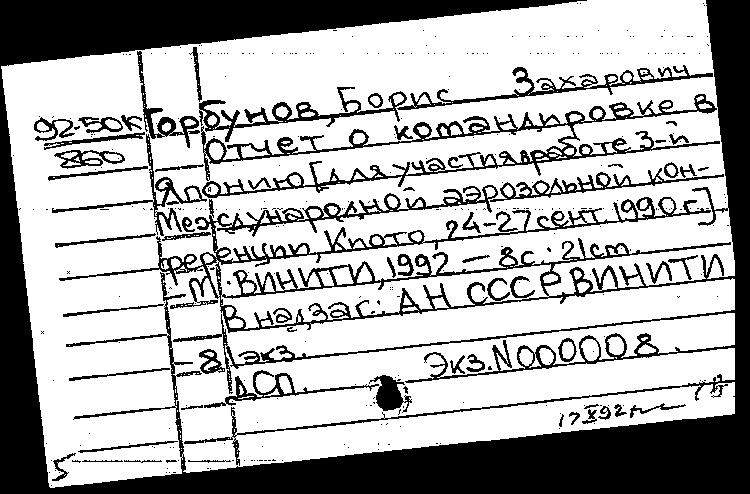 92-50К Горбунов, Борис Захарович
860 Отчет о командировке в
Японию [для участия в работе 3-й
Международной аэрозольной кон-
ференции, Киото, 24-27 сент. 1990 г.]
- М.: ВИНИТИ, 1992. - 8 с.; 21 ст.
В надзаг.: АН СССР, ВИНИТИ
- 81 экз.
ДСП. Экз. N000008.
17 X 92
5